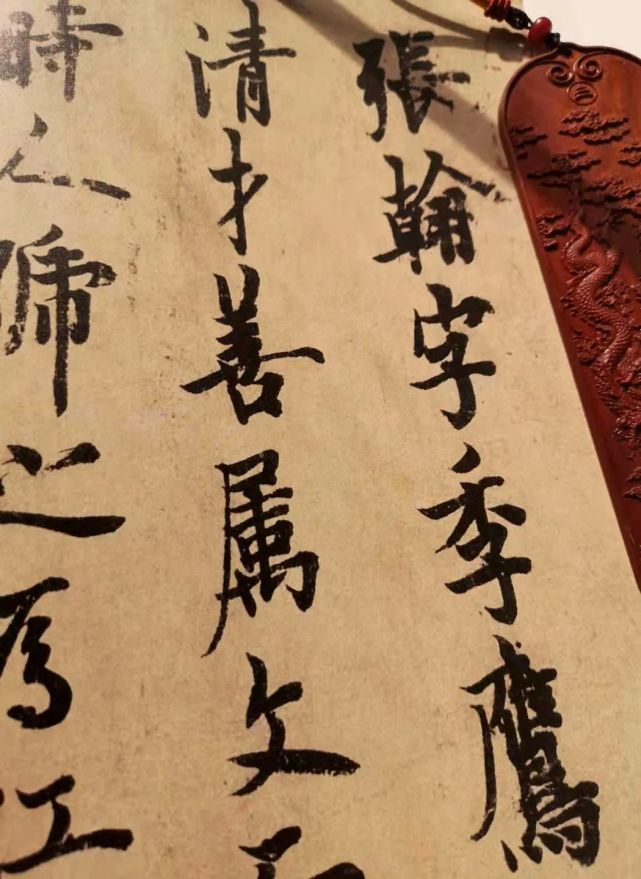 張翰字季鷹
清才善属文
時人號之為江